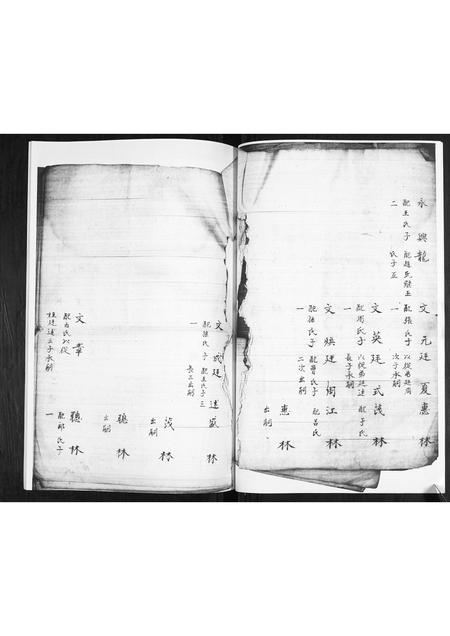 永興龍 文元廷夏惠林
配王氏子二
氏子五
配張氏子一
以從弟廷周次子承嗣
文英廷式茂林
配周氏子一
以從弟廷述長子承嗣
配于氏子
文煥廷周江
配孫氏子一
配曹氏子二次出嗣
配呂氏
惠林
出嗣
文成廷述盛林
配孫氏子一
配王氏子三
長三出嗣
茂林
出嗣
聰林
出嗣
文章 聰林
以從
姪廷述三子承嗣
配邱氏子一